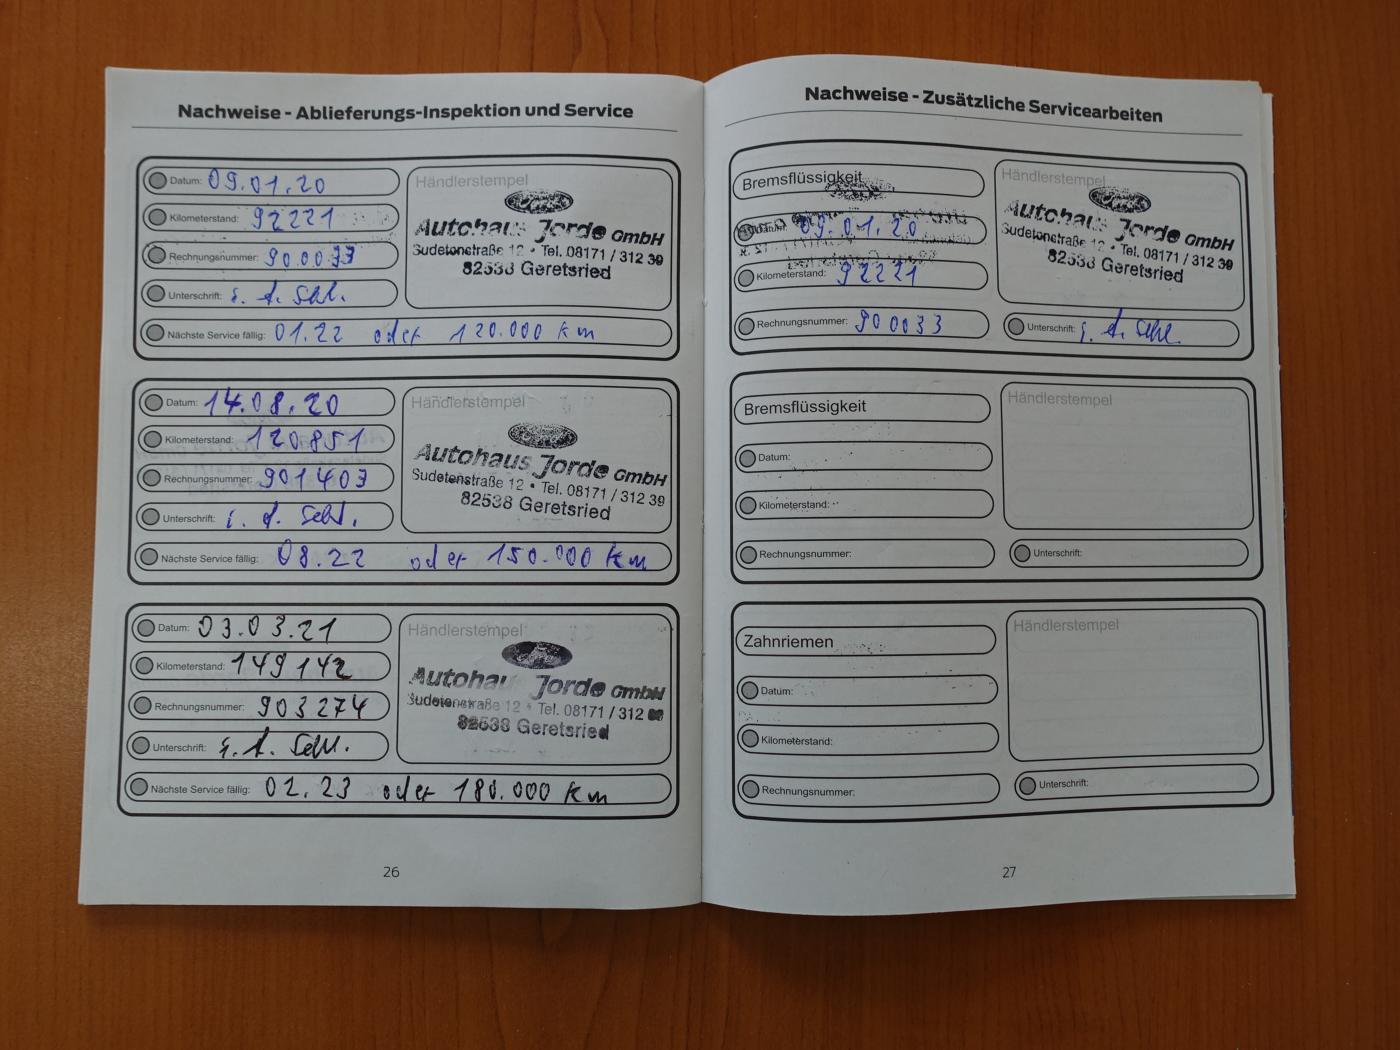 Nachweise - Ablieferungs-Inspektion und Service
Datum: 09.01.20
Kilometerstand: 92221
Rechnungsnummer: 900033
Unterschrift: i. A.
Nächste Service fällig: 01.22 oder 120.000 km
Händlerstempel
Autohaus Jorde GmbH
Sudetenstraße 12 • Tel. 08171 / 312 39
82538 Geretsried
Datum: 14.08.20
Kilometerstand: 120851
Rechnungsnummer: 901403
Unterschrift: i. A.
Nächste Service fällig: 08.22 oder 150.000 km
Händlerstempel
Autohaus Jorde GmbH
Sudetenstraße 12 • Tel. 08171 / 312 39
82538 Geretsried
Datum: 03.03.21
Kilometerstand: 149142
Rechnungsnummer: 903274
Unterschrift: i. A.
Nächste Service fällig: 02.23 oder 180.000 km
Händlerstempel
Autohaus Jorde GmbH
Sudetenstraße 12 • Tel. 08171 / 312
82538 Geretsried
26
Nachweise - Zusätzliche Servicearbeiten
Bremsflüssigkeit
Datum: 09.01.20
Kilometerstand: 92221
Rechnungsnummer: 900033
Händlerstempel
Autohaus Jorde GmbH
Sudetenstraße 12 • Tel. 08171 / 312 39
82538 Geretsried
Unterschrift: i. A.
Bremsflüssigkeit
Datum:
Kilometerstand:
Rechnungsnummer:
Händlerstempel
Unterschrift:
Zahnriemen
Datum:
Kilometerstand:
Rechnungsnummer:
Händlerstempel
Unterschrift:
27